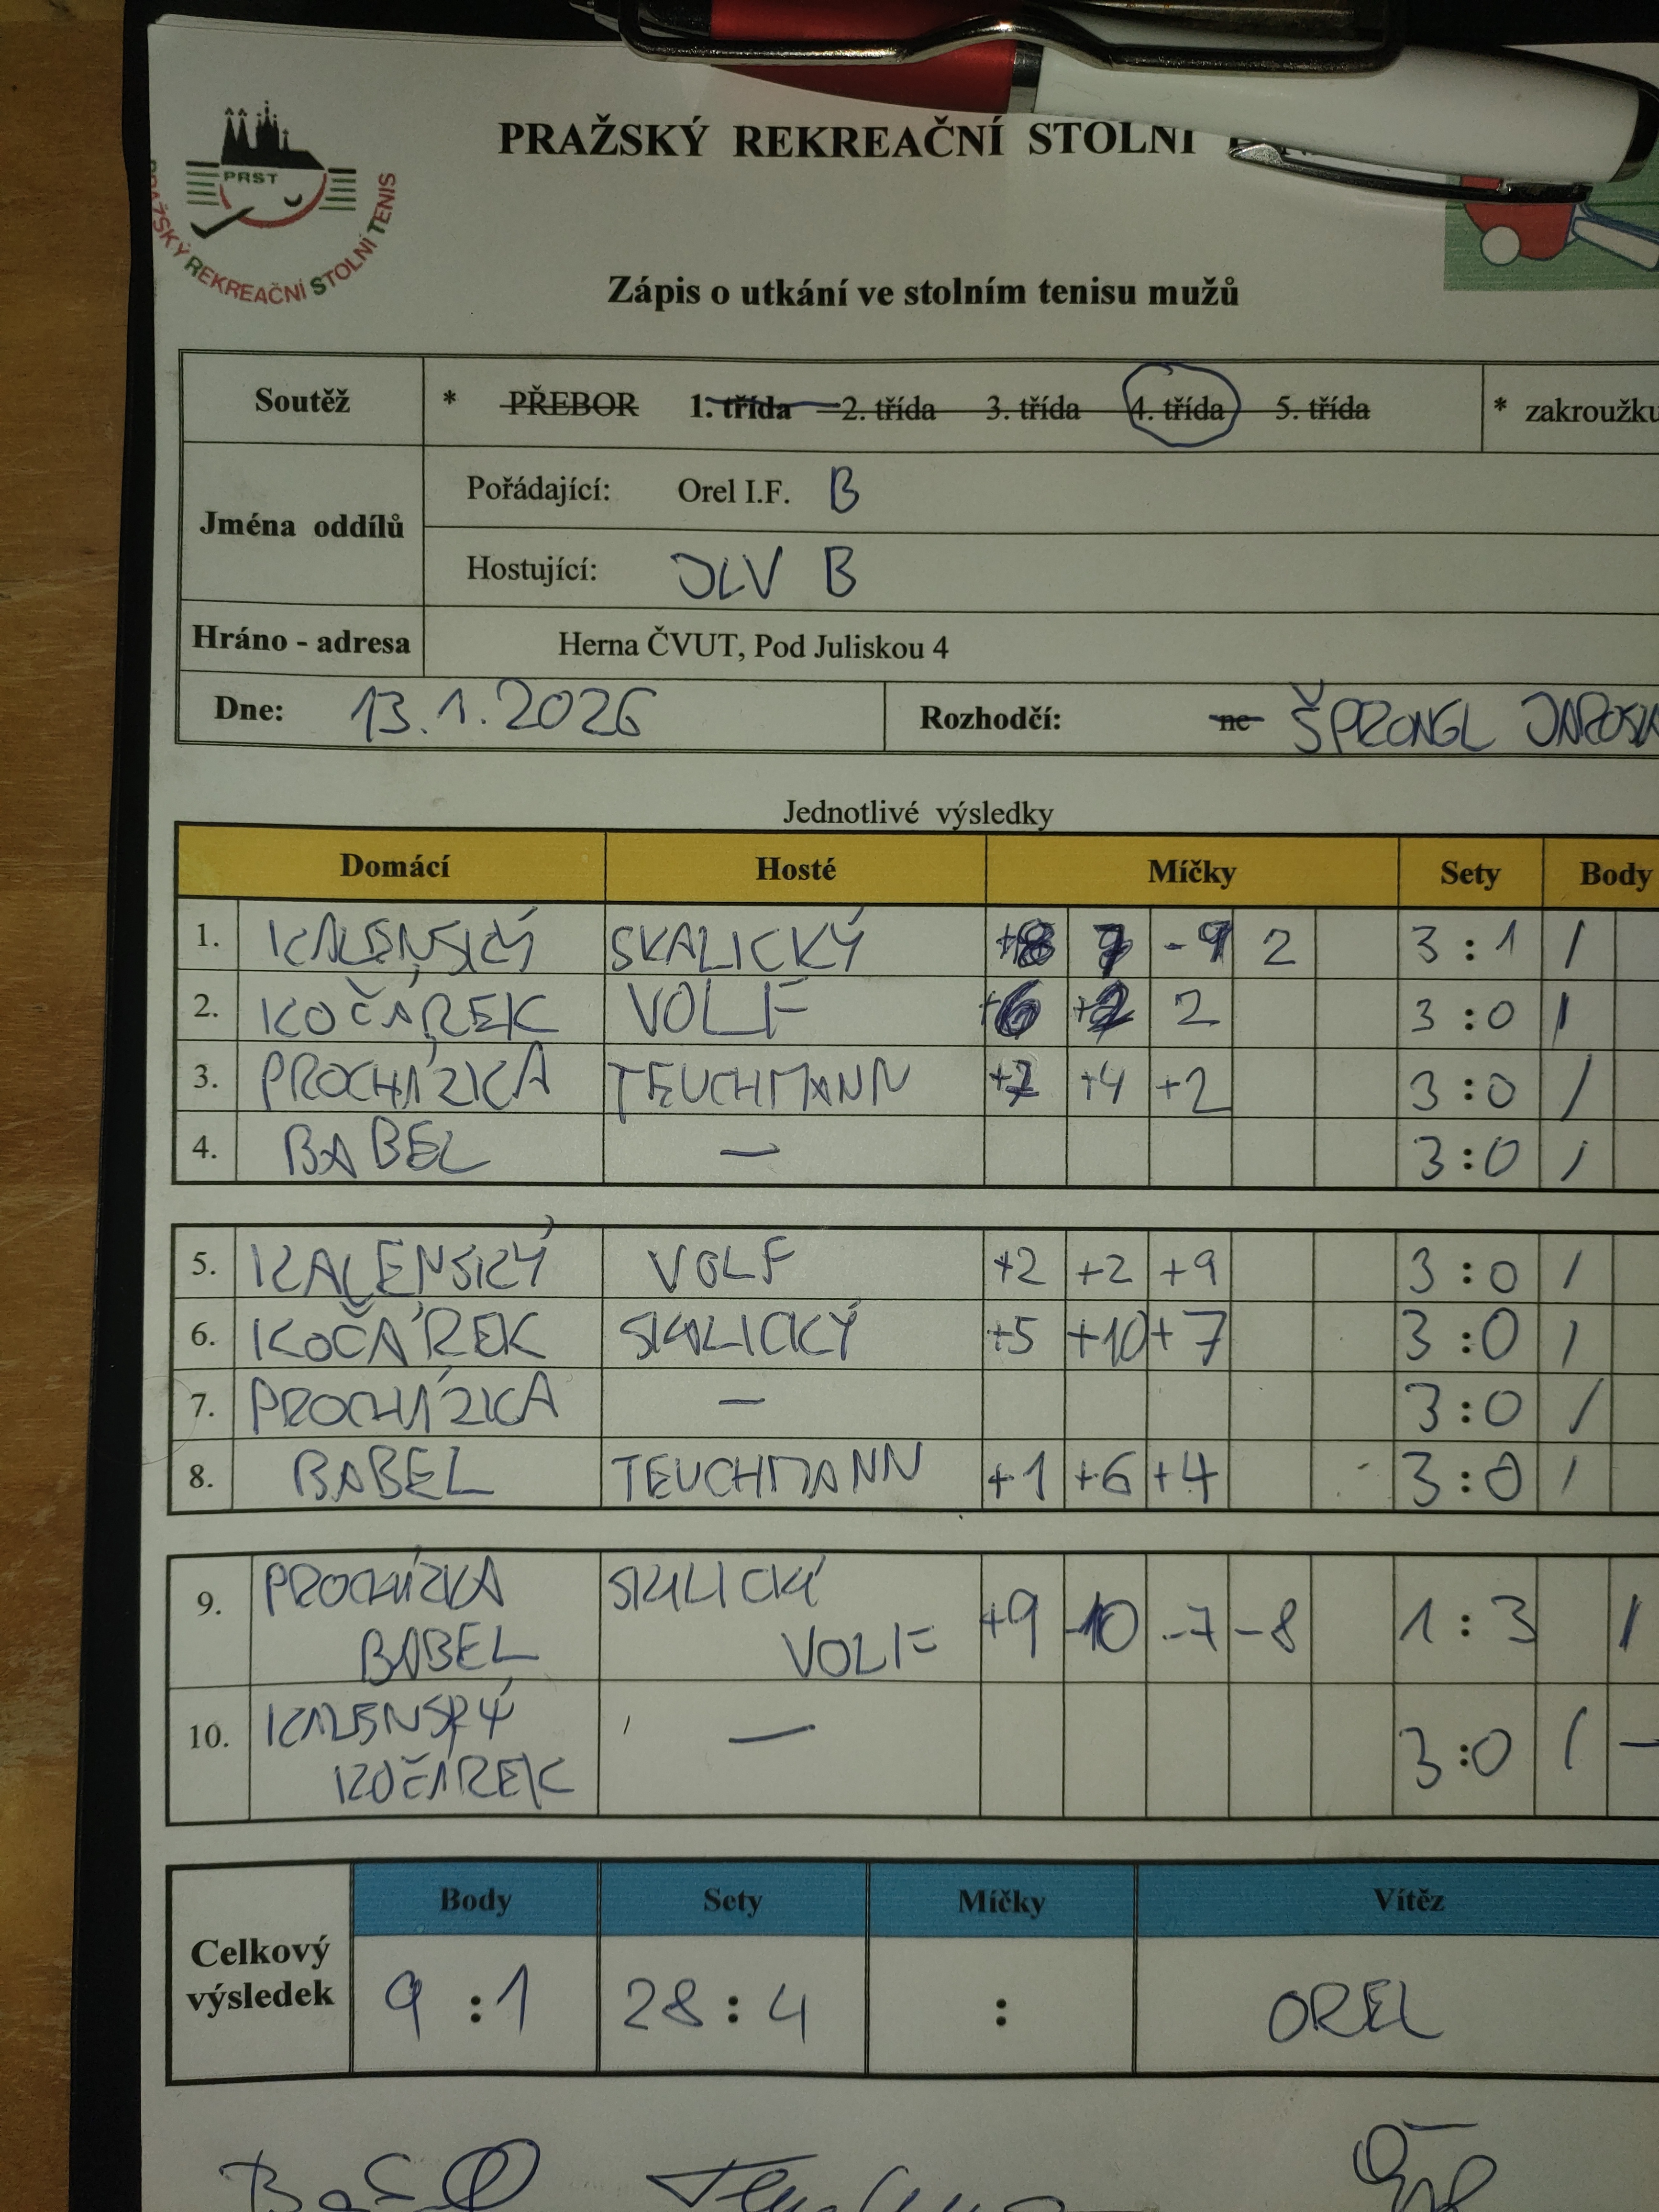 PRAŽSKÝ REKREAČNÍ STOLNÍ
PRST
PRAŽSKÝ REKREAČNÍ STOLNÍ TENIS
Zápis o utkání ve stolním tenisu mužů
Soutěž * PŘEBOR 1. třída 2. třída 3. třída 4. třída 5. třída * zakroužku
Jména oddílů
Pořádající: Orel I.F. B
Hostující: JLV B
Hráno - adresa Herna ČVUT, Pod Juliskou 4
Dne: 13.1.2026 Rozhodčí: ne ŠPRONGL
Jednotlivé výsledky
Domácí Hosté Míčky Sety Body
1. KALENSKÝ SKALICKÝ -9 2 3 : 1 /
2. KOČÁREK VOLF +6 +2 2 3 : 0 /
3. PROCHÁZKA TEUCHMANN +4 +2 3 : 0 /
4. BABEL — 3 : 0 /
5. KALENSKÝ VOLF +2 +2 +9 3 : 0 /
6. KOČÁREK SKALICKÝ +5 +10 +7 3 : 0 /
7. PROCHÁZKA — 3 : 0 /
8. BABEL TEUCHMANN +1 +6 +4 3 : 0 /
9. PROCHÁZKA SKALICKÝ +9 -10 -7 -8 1 : 3 /
BABEL VOLF
10. KALENSKÝ — 3 : 0 / -
KOČÁREK
Body Sety Míčky Vítěz
Celkový výsledek 9 : 1 28 : 4 : OREL